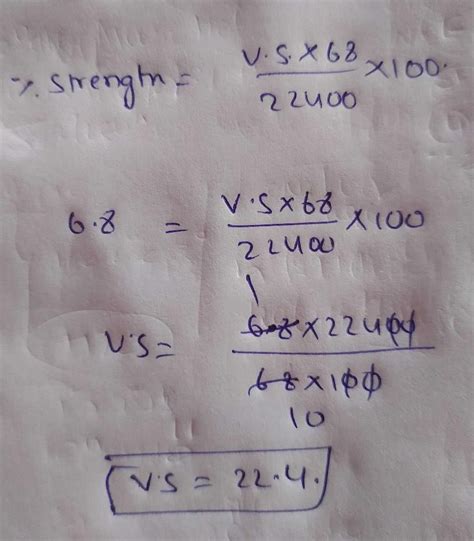 % strength = V.S. × 68 / 22400 × 100.
6.8 = V.S × 68 / 22400 × 100
V.S = 6.8 × 22400 / 68 × 100
1
10
V.S = 22.4.